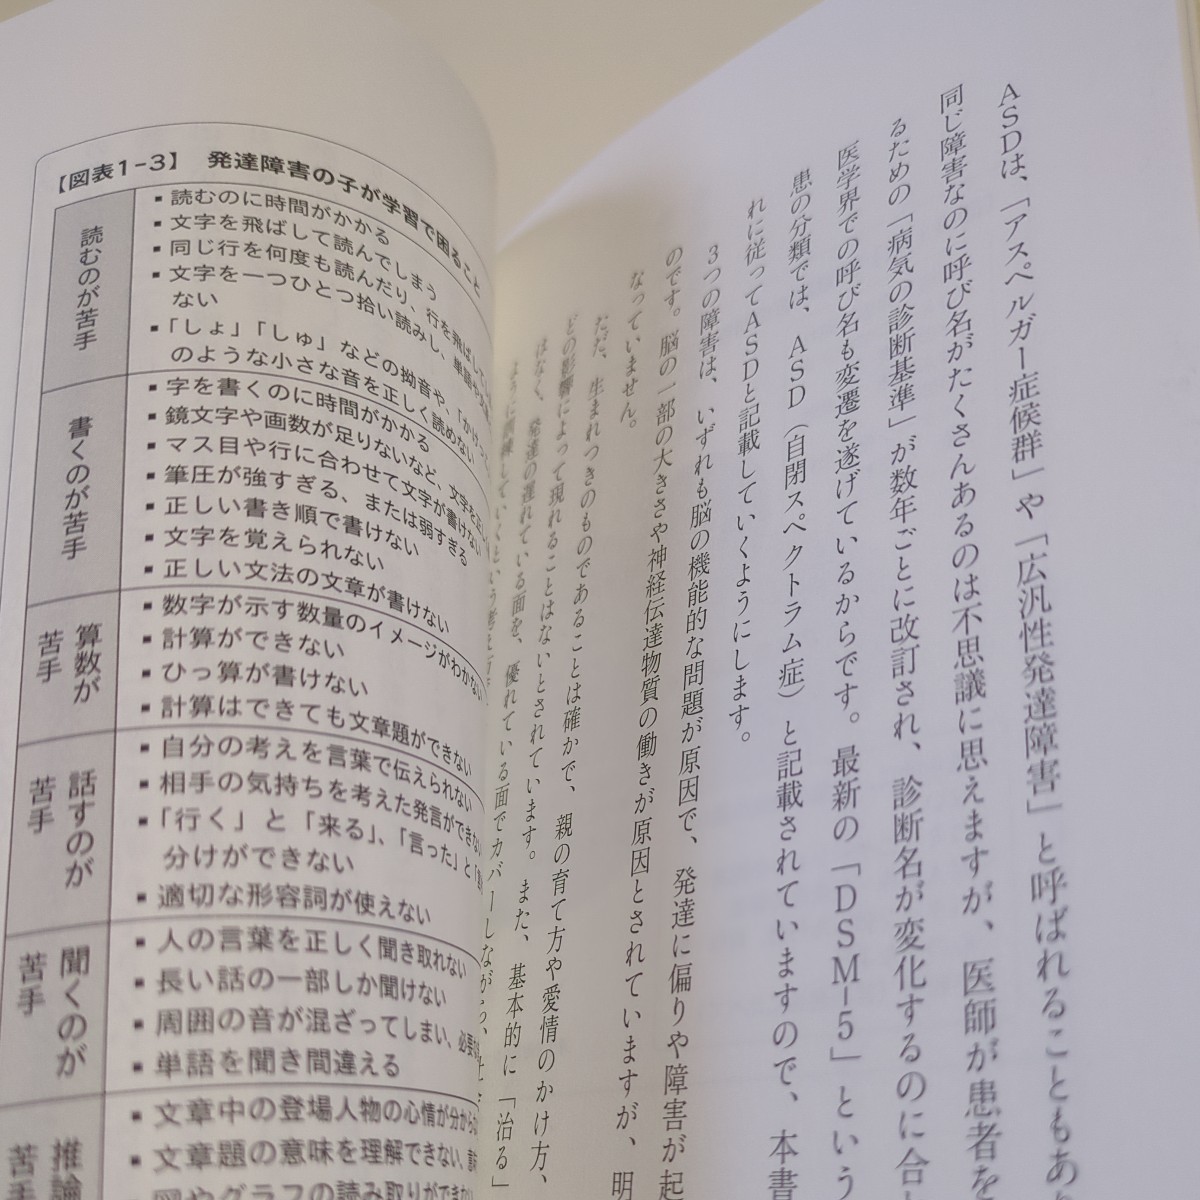 ASDは、「アスペルガー症候群」や「広汎性発達障害」と呼ばれることもあり
同じ障害なのに呼び名がたくさんあるのは不思議に思えますが、医師が患者を
るための「病気の診断基準」が数年ごとに改訂され、診断名が変化するのに合
医学界での呼び名も変遷を遂げているからです。最新の「DSM-5」という
患の分類では、ASD（自閉スペクトラム症）と記載されていますので、本書
れに従ってASDと記載していくようにします。
3つの障害は、いずれも脳の機能的な問題が原因で、発達に偏りや障害が起
のです。脳の一部の大きさや神経伝達物質の働きが原因とされていますが、明
なっていません。
ただ、生まれつきのものであることは確かで、親の育て方や愛情のかけ方、
どの影響によって現れることはないとされています。また、基本的に「治る」
はなく、発達の遅れている面を、優れている面でカバーしながら、社
ように訓練していくという考え方
【図表1-3】 発達障害の子が学習で困ること
読むのが苦手
▪読むのに時間がかかる
▪文字を飛ばして読んでしまう
▪同じ行を何度も読んだり、行を飛ばし
▪文字を一つひとつ拾い読みし、単語や
ない
▪「しょ」「しゅ」などの拗音や、「かけっ
のような小さな音を正しく読めない
書くのが苦手
▪字を書くのに時間がかかる
▪鏡文字や画数が足りないなど、文字を
▪マス目や行に合わせて文字が書けない
▪筆圧が強すぎる、または弱すぎる
▪正しい書き順で書けない
▪文字を覚えられない
▪正しい文法の文章が書けない
算数が
苦手
▪数字が示す数量のイメージがわかない
▪計算ができない
▪ひっ算が書けない
▪計算はできても文章題ができない
話すのが
苦手
▪自分の考えを言葉で伝えられない
▪相手の気持ちを考えた発言ができない
▪「行く」と「来る」、「言った」と「
分けができない
▪適切な形容詞が使えない
聞くのが
苦手
▪人の言葉を正しく聞き取れない
▪長い話の一部しか聞けない
▪周囲の音が混ざってしまい、必要
▪単語を聞き間違える
推論
苦手
▪文章中の登場人物の心情が分から
▪文章題の意味を理解できない、
▪図やグラフの読み取りができ